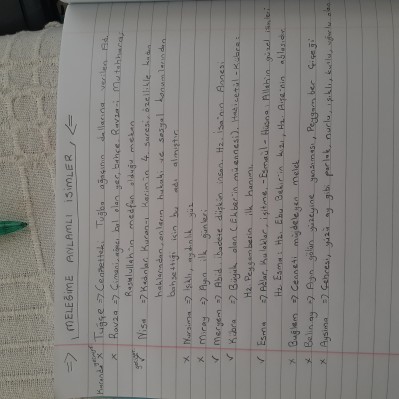 => MELEĞİME ANLAMLI İSİMLER <=
x Tuğçe => Cennetteki Tuğba ağacının dallarına verilen Ad
x Ravza => Çimeni, ağacı bol olan yer, bahçe. Ravza-i Mutahhara;
Rasulullah'ın medfun olduğu mekan
Nisa => Kadınlar, Kuran-ı Kerim'in 4. suresi, özellikle kadın
haklarından, onların hukuki ve sosyal konumlarından
bahsettiği için bu adı almıştır
x Nursima => Işıklı, aydınlık yüz
x Miray => Ayın ilk günleri
✓ Meryem => Abid, ibadete düşkün insan. Hz. İsa'nın Annesi
✓ Kübra => Büyük olan (Ekber'in müennesi), Haticetül-Kübra:
Hz. Peygamberin ilk hanımı
✓ Esma => Adlar, kulaklar, işitme. - Esmaül-Hüsna: Allahın güzel isimleri
Hz. Esma: Hz. Ebu Bekir'in kızı, Hz. Aişe'nin ablasıdır
x Buğlem => Cenneti müjdeleyen melek
x Belinay => Ayın gölün yüzeyine yansıması, Peygamber Çiçeği
x Aysima => Çehresi, yüzü ay gibi parlak, nurlu, ışıklı, kutlu, uğurlu olan